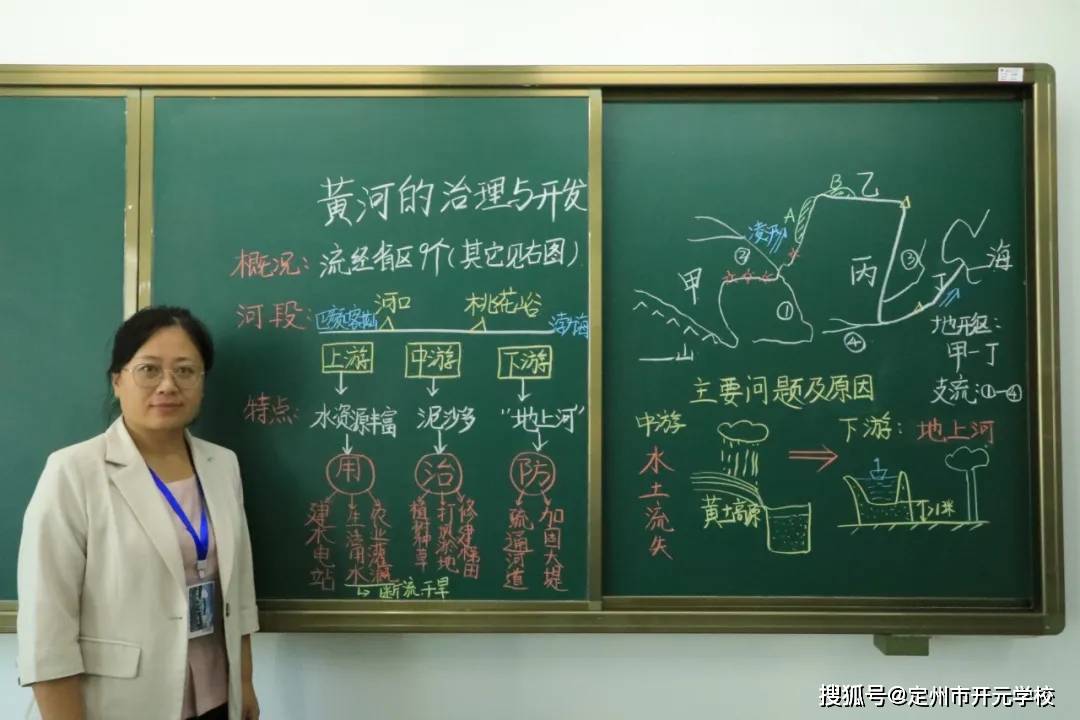 黄河的治理与开发
概况：流经省区9个（其它见右图）
河段：
河口 桃花峪 渤海
上游 中游 下游
特点：水资源丰富 泥沙多 “地上河”
用 治 防
建水电站 生活用水 农业灌溉 植树种草 打坝淤地 修建梯田 疏通河道 加固大堤
断流干旱
B 乙
A 凌汛
② 甲 丙 ③ 丁 海
① ④
山
地形区：
甲—丁
支流：①—④
主要问题及原因
中游 下游：地上河
水土流失
黄土高原
搜狐号@定州市开元学校